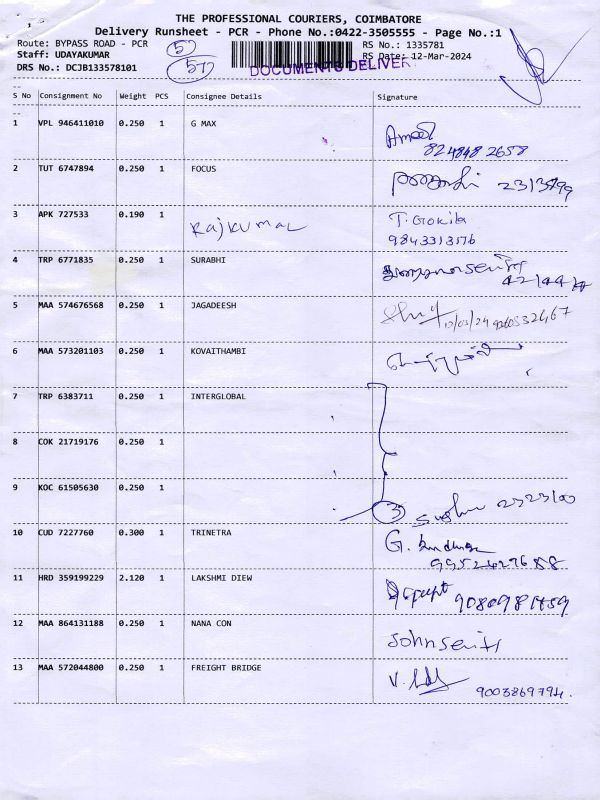 THE PROFESSIONAL COURIERS, COIMBATORE
Delivery Runsheet - PCR - Phone No.:0422-3505555 - Page No.:1
Route: BYPASS ROAD - PCR
RS No.: 1335781
Staff: UDAYAKUMAR
RS Date: 12-Mar-2024
DRS No.: DCJB133578101
57
DOCUMENTS DELIVER
S No Consignment No Weight PCS Consignee Details Signature
1 VPL 946411010 0.250 1 G MAX
824848 2658
2 TUT 6747894 0.250 1 FOCUS
3 APK 727533 0.190 1 Rajkumar T. Gokila
9843313176
4 TRP 6771835 0.250 1 SURABHI
5 MAA 574676568 0.250 1 JAGADEESH
6 MAA 573201103 0.250 1 KOVAITHAMBI
7 TRP 6383711 0.250 1 INTERGLOBAL
8 COK 21719176 0.250 1
9 KOC 61505630 0.250 1
3
10 CUD 7227760 0.300 1 TRINETRA G.
11 HRD 359199229 2.120 1 LAKSHMI DIEW
12 MAA 864131188 0.250 1 NANA CON
13 MAA 572044800 0.250 1 FREIGHT BRIDGE V.
9003869794.